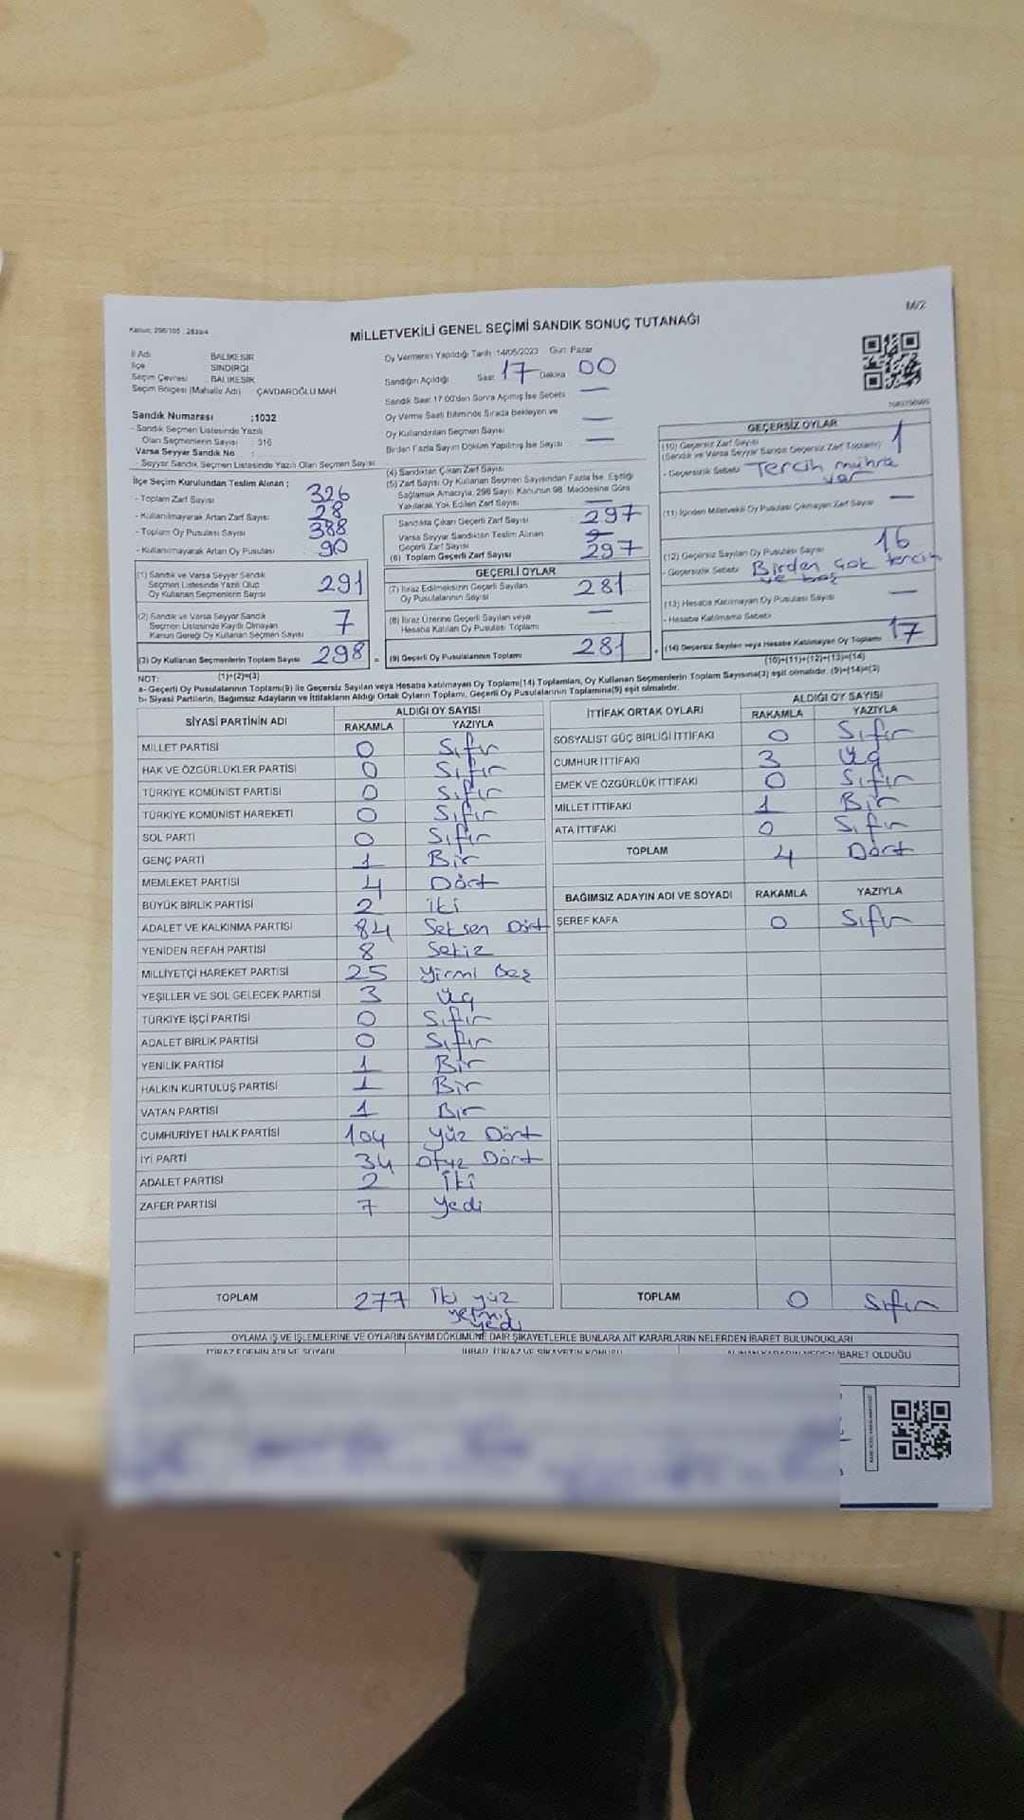 M/2
MİLLETVEKİLİ GENEL SEÇİMİ SANDIK SONUÇ TUTANAĞI
İl Adı BALIKESİR
İlçe SINDIRGI
Seçim Çevresi BALIKESİR
Seçim Bölgesi (Mahalle Adı) ÇAVDAROĞLU MAH
Sandık Numarası :1032
- Sandık Seçmen Listesinde Yazılı
Olan Seçmenlerin Sayısı : 316
Varsa Seyyar Sandık No :
Seyyar Sandık Seçmen Listesinde Yazılı Olan Seçmen Sayısı
İlçe Seçim Kurulundan Teslim Alınan ;
- Toplam Zarf Sayısı 326
- Kullanılmayarak Artan Zarf Sayısı 28
- Toplam Oy Pusulası Sayısı 388
- Kullanılmayarak Artan Oy Pusulası 90
(1) Sandık ve Varsa Seyyar Sandık
Seçmen Listesinde Yazılı Olup
Oy Kullanan Seçmenlerin Sayısı 291
(2) Sandık ve Varsa Seyyar Sandık
Seçmen Listesinde Kayıtlı Olmayan
Kanun Gereği Oy Kullanan Seçmen Sayısı 7
(3) Oy Kullanan Seçmenlerin Toplam Sayısı 298
Oy Vermenin Yapıldığı Tarih :14/05/2023 Gün: Pazar
Sandığın Açıldığı Saat 17 Dakika 00
Sandık Saat 17:00'den Sonra Açılmış İse Sebebi —
Oy Verme Saati Bitiminde Sırada Bekleyen ve
Oy Kullandırılan Seçmen Sayısı —
Birden Fazla Sayım Döküm Yapılmış İse Sayısı —
(4) Sandıktan Çıkan Zarf Sayısı
(5) Zarf Sayısı Oy Kullanan Seçmen Sayısından Fazla İse, Eşitliği
Sağlamak Amacıyla, 298 Sayılı Kanunun 98. Maddesine Göre
Yakılarak Yok Edilen Zarf Sayısı
Sandıkta Çıkan Geçerli Zarf Sayısı 297
Varsa Seyyar Sandıktan Teslim Alınan
Geçerli Zarf Sayısı
(6) Toplam Geçerli Zarf Sayısı 297
GEÇERLİ OYLAR
(7) İtiraz Edilmeksizin Geçerli Sayılan
Oy Pusulalarının Sayısı 281
(8) İtiraz Üzerine Geçerli Sayılan veya
Hesaba Katılan Oy Pusulası Toplamı —
(9) Geçerli Oy Pusulalarının Toplamı 281
GEÇERSİZ OYLAR
(10) Geçersiz Zarf Sayısı
(Sandık ve Varsa Seyyar Sandık Geçersiz Zarf Toplamı) 1
- Geçersizlik Sebebi Tercih mührü
var
(11) İçinden Milletvekili Oy Pusulası Çıkmayan Zarf Sayısı —
(12) Geçersiz Sayılan Oy Pusulası Sayısı 16
- Geçersizlik Sebebi Birden çok tercih
ve boş
(13) Hesaba Katılmayan Oy Pusulası Sayısı —
- Hesaba Katılmama Sebebi
(14) Geçersiz Sayılan veya Hesaba Katılmayan Oy Toplamı 17
NOT: (1)+(2)=(3) (10)+(11)+(12)+(13)=(14)
a- Geçerli Oy Pusulalarının Toplamı(9) ile Geçersiz Sayılan veya Hesaba katılmayan Oy Toplamı(14) Toplamları, Oy Kullanan Seçmenlerin Toplam Sayısına(3) eşit olmalıdır. (9)+(14)=(3)
b- Siyasi Partilerin, Bağımsız Adayların ve İttifakların Aldığı Ortak Oyların Toplamı, Geçerli Oy Pusulalarının Toplamına(9) eşit olmalıdır.
SİYASİ PARTİNİN ADI ALDIĞI OY SAYISI
RAKAMLA YAZIYLA
MİLLET PARTİSİ 0 Sıfır
HAK VE ÖZGÜRLÜKLER PARTİSİ 0 Sıfır
TÜRKİYE KOMÜNİST PARTİSİ 0 Sıfır
TÜRKİYE KOMÜNİST HAREKETİ 0 Sıfır
SOL PARTİ 0 Sıfır
GENÇ PARTİ 1 Bir
MEMLEKET PARTİSİ 4 Dört
BÜYÜK BİRLİK PARTİSİ 2 İki
ADALET VE KALKINMA PARTİSİ 84 Seksen Dört
YENİDEN REFAH PARTİSİ 8 Sekiz
MİLLİYETÇİ HAREKET PARTİSİ 25 Yirmi Beş
YEŞİLLER VE SOL GELECEK PARTİSİ 3 Üç
TÜRKİYE İŞÇİ PARTİSİ 0 Sıfır
ADALET BİRLİK PARTİSİ 0 Sıfır
YENİLİK PARTİSİ 1 Bir
HALKIN KURTULUŞ PARTİSİ 1 Bir
VATAN PARTİSİ 1 Bir
CUMHURİYET HALK PARTİSİ 104 Yüz Dört
İYİ PARTİ 34 Otuz Dört
ADALET PARTİSİ 2 İki
ZAFER PARTİSİ 7 Yedi
TOPLAM 277 İki yüz
yetmiş
yedi
İTTİFAK ORTAK OYLARI ALDIĞI OY SAYISI
RAKAMLA YAZIYLA
SOSYALİST GÜÇ BİRLİĞİ İTTİFAKI 0 Sıfır
CUMHUR İTTİFAKI 3 Üç
EMEK VE ÖZGÜRLÜK İTTİFAKI 0 Sıfır
MİLLET İTTİFAKI 1 Bir
ATA İTTİFAKI 0 Sıfır
TOPLAM 4 Dört
BAĞIMSIZ ADAYIN ADI VE SOYADI RAKAMLA YAZIYLA
ŞEREF KAFA 0 Sıfır
TOPLAM 0 Sıfır
OYLAMA İŞ VE İŞLEMLERİNE VE OYLARIN SAYIM DÖKÜMÜNE DAİR ŞİKAYETLERLE BUNLARA AİT KARARLARIN NELERDEN İBARET BULUNDUKLARI
İTİRAZ EDENİN ADI VE SOYADI İHBAR, İTİRAZ VE ŞİKAYETİN KONUSU ALINAN KARARIN NEDEN İBARET OLDUĞU